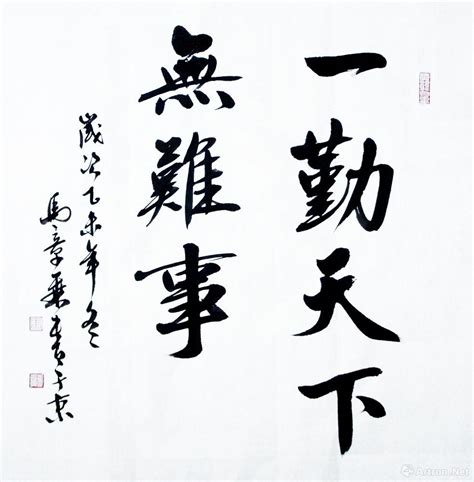 一勤天下
無難事
歲次乙未年冬
馬章乘書于京
Artron.Net